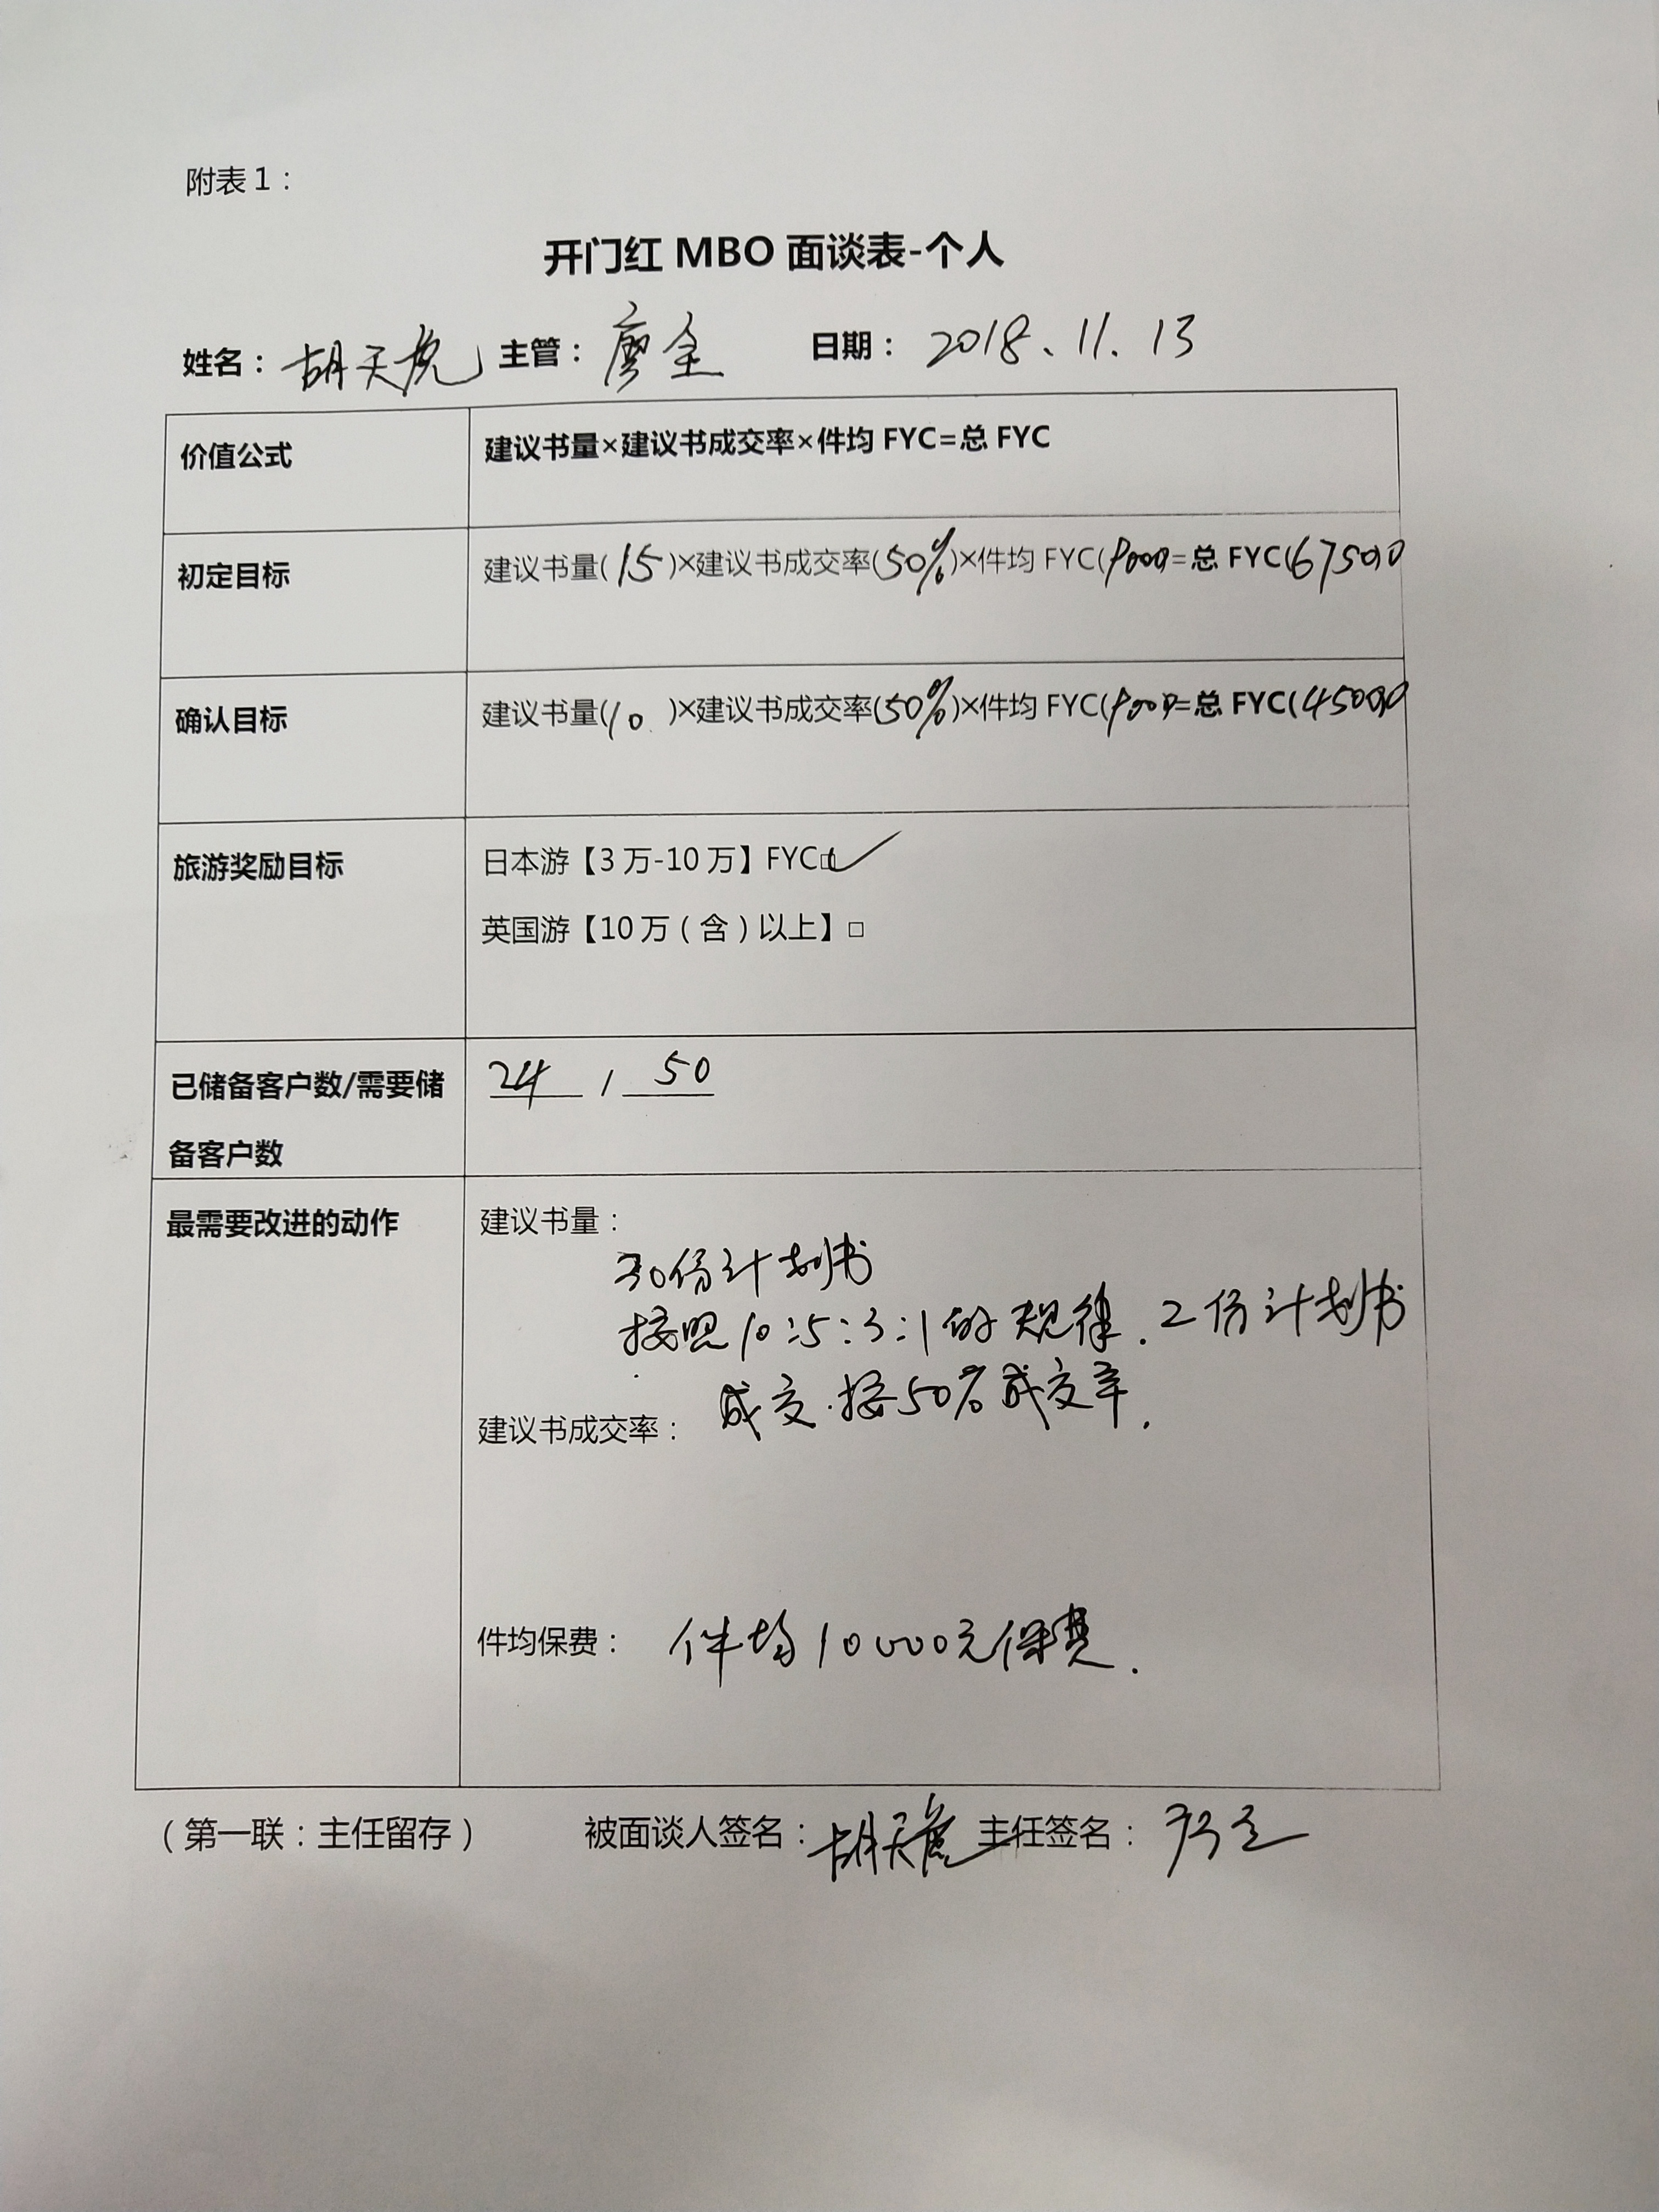 附表1：
开门红 MBO 面谈表-个人
姓名：胡天虎 主管：廖全 日期：2018.11.13
价值公式 建议书量×建议书成交率×件均 FYC=总 FYC
初定目标 建议书量(15)×建议书成交率(50%)×件均 FYC(9000=总 FYC(67500)
确认目标 建议书量(10)×建议书成交率(50%)×件均 FYC(9000=总 FYC(45000)
旅游奖励目标 日本游【3万-10万】FYC□✓
英国游【10万（含）以上】□
已储备客户数/需要储 24 / 50
备客户数
最需要改进的动作 建议书量：
30份计划书
按照10:5:3:1的规律.2份计划书
成交.按50%成交率.
建议书成交率：
件均保费： 件均10000元保费.
（第一联：主任留存） 被面谈人签名：胡天虎 主任签名：